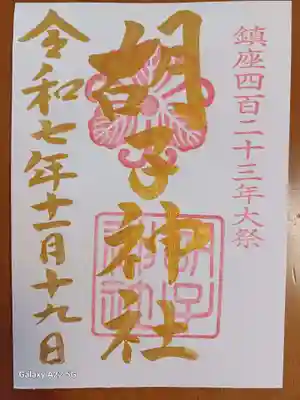 鎮座四百二十三年大祭
胡子神社
胡子神社
令和七年十一月十九日
Galaxy A22 5G